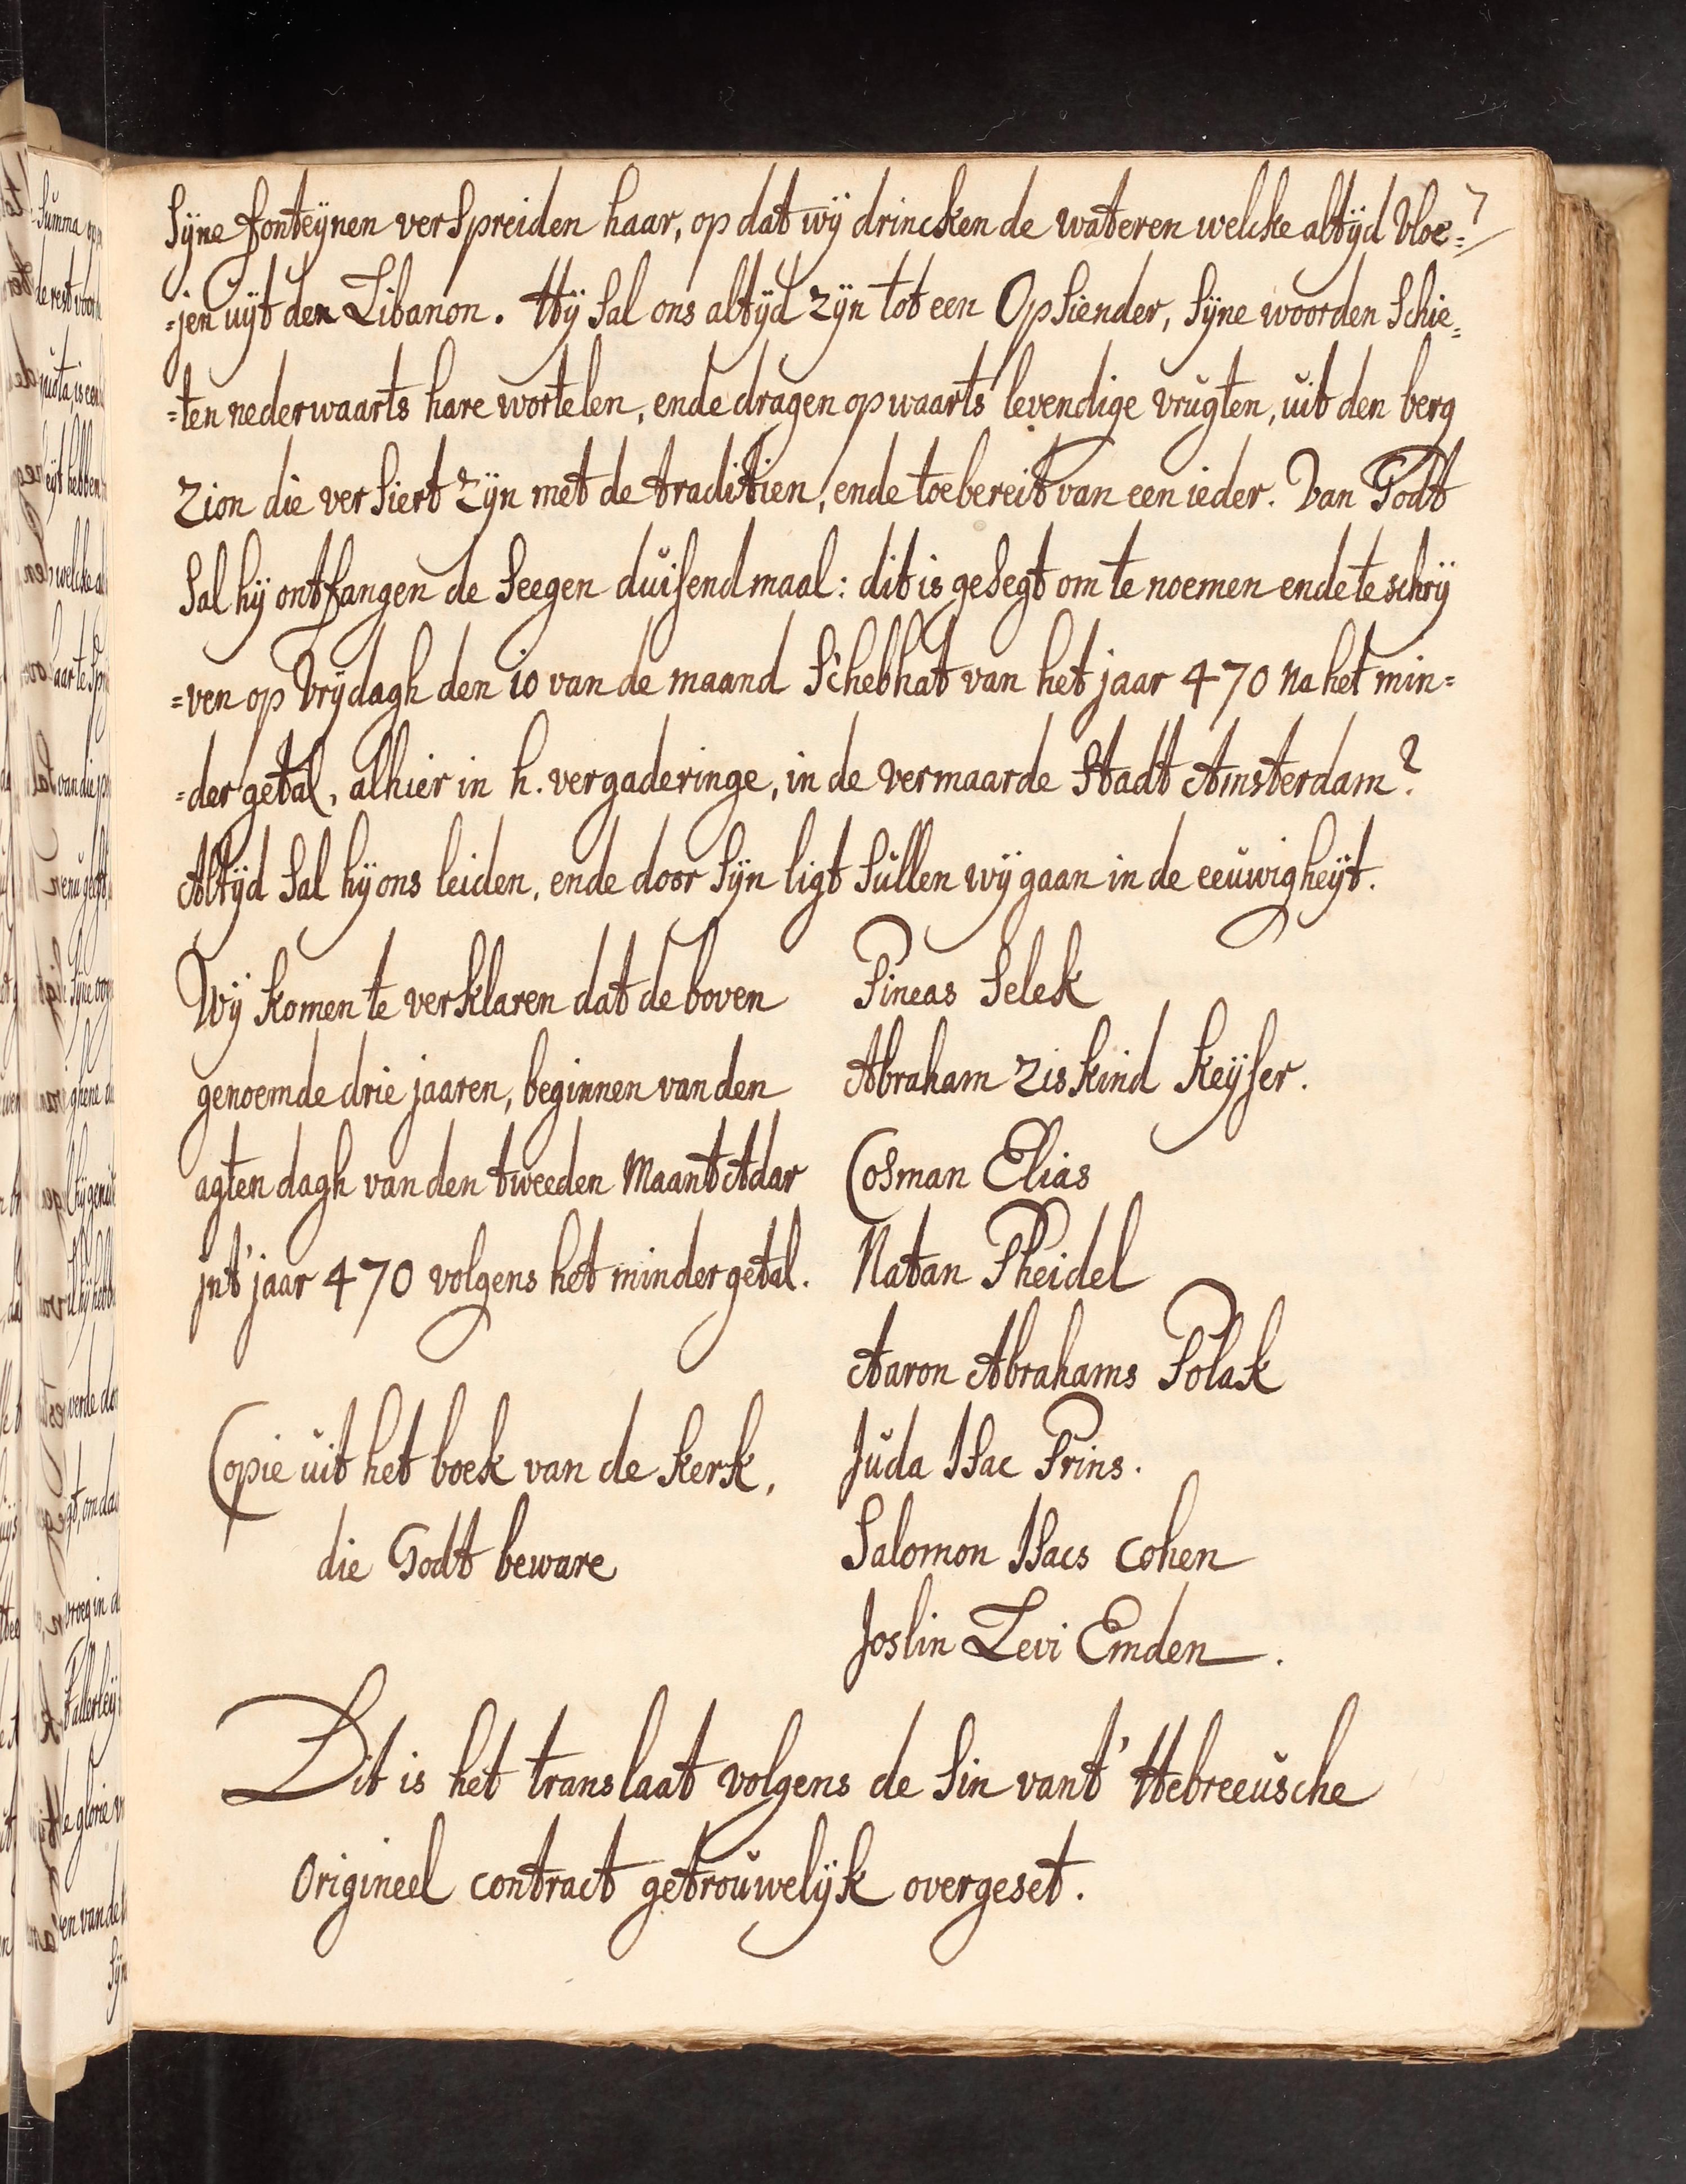 Sijne fonteijnen verspreiden haar, op dat wij drincken de wateren welcke altijd vloe=
=jen uijt den Libanon. Hij sal ons altijd zijn tot een Opsiender, sijne woorden schie=
=ten nederwaarts hare wortelen, ende dragen opwaarts levendige vrugten, uit den berg
zion die versiert zijn met de traditien, ende toebereit van een ieder. Van Godt
sal hij ontfangen de seegen duisendmaal: dit is gesegt om te noemen ende te schrij
=ven op Vrijdagh den 10 van de maand Schebhat van het jaar 470 na het min=
=der getal, alhier in h. vergaderinge, in de vermaarde Stadt Amsterdam?
Altijd sal hij ons leiden, ende door sijn ligt sullen wij gaan in de eeuwigheijt.
Wij komen te verklaren dat de boven
genoemde drie jaaren, beginnen van den
agten dagh van den tweeden Maant Adar
jnt' jaar 470 volgens het minder getal.
Copie uit het boek van de kerk,
die Godt beware
Pineas Selek
Abraham ziskind Keijser.
Cosman Elias
Natan Pheidel
Aaron Abrahams Polak
Juda Isac Prins.
Salomon Isacs Cohen
Joslin Levi Emden.
Dit is het translaat volgens de sin vant' Hebreeusche
Origineel contract getrouwelijk overgeset.